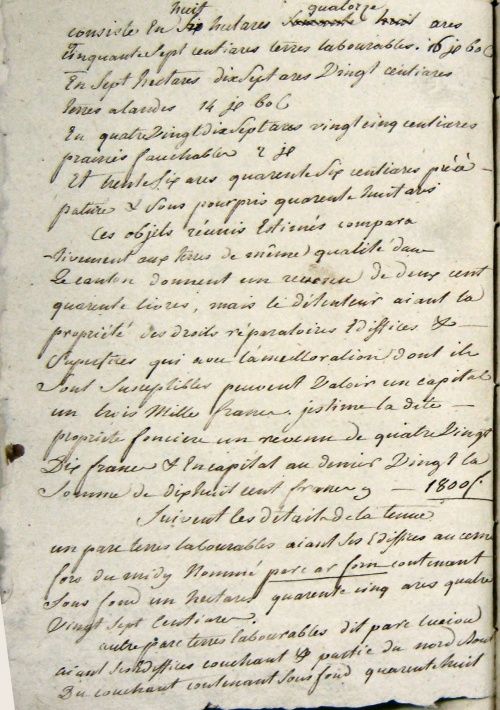 huit quatorze
consiste En Six hectares Soixante huit ares
Cinquante Sept centiares terres labourables. 16 jx 60 c
En Sept hectares dix Sept ares Vingt centiares
terres a landes 14 jx 60 c
En quatre Vingt dix Sept ares vingt cinq centiares
prairies fauchables 2 jx
Et trente Six ares quarente Six centiares
pature & Sous pourpris quarente huit ares
Ces objets réunis Estimés compara
tivement aux terres de même qualité dans
Le canton donnent un revenu de deux cent
quarente livres, mais le détenteur aiant la
propriété des droits réparatoires Ediffices &
Superfices qui avec lamelloration dont ils
Sont Susceptibles peuvent Valoir un capital
un trois Mille francs. jestime la dite
propriété fonciere un revenu de quatre Vingt
Dix francs & En capital au denier Vingt la
Somme de dix huit cent francs 1800 f.
Suivent les détails de la tenue
un parc terres labourables aiant Ses Ediffices au cerne
fors du midy Nommé parc ar forn contenant
Sous fond un hectare quarente cinq ares quatre
Vingt Sept Centiares.
autre parc terres labourables dit parc
aiant Ses Ediffices couchant & partie du nord
Du couchant contenant Sous fond quarente huit